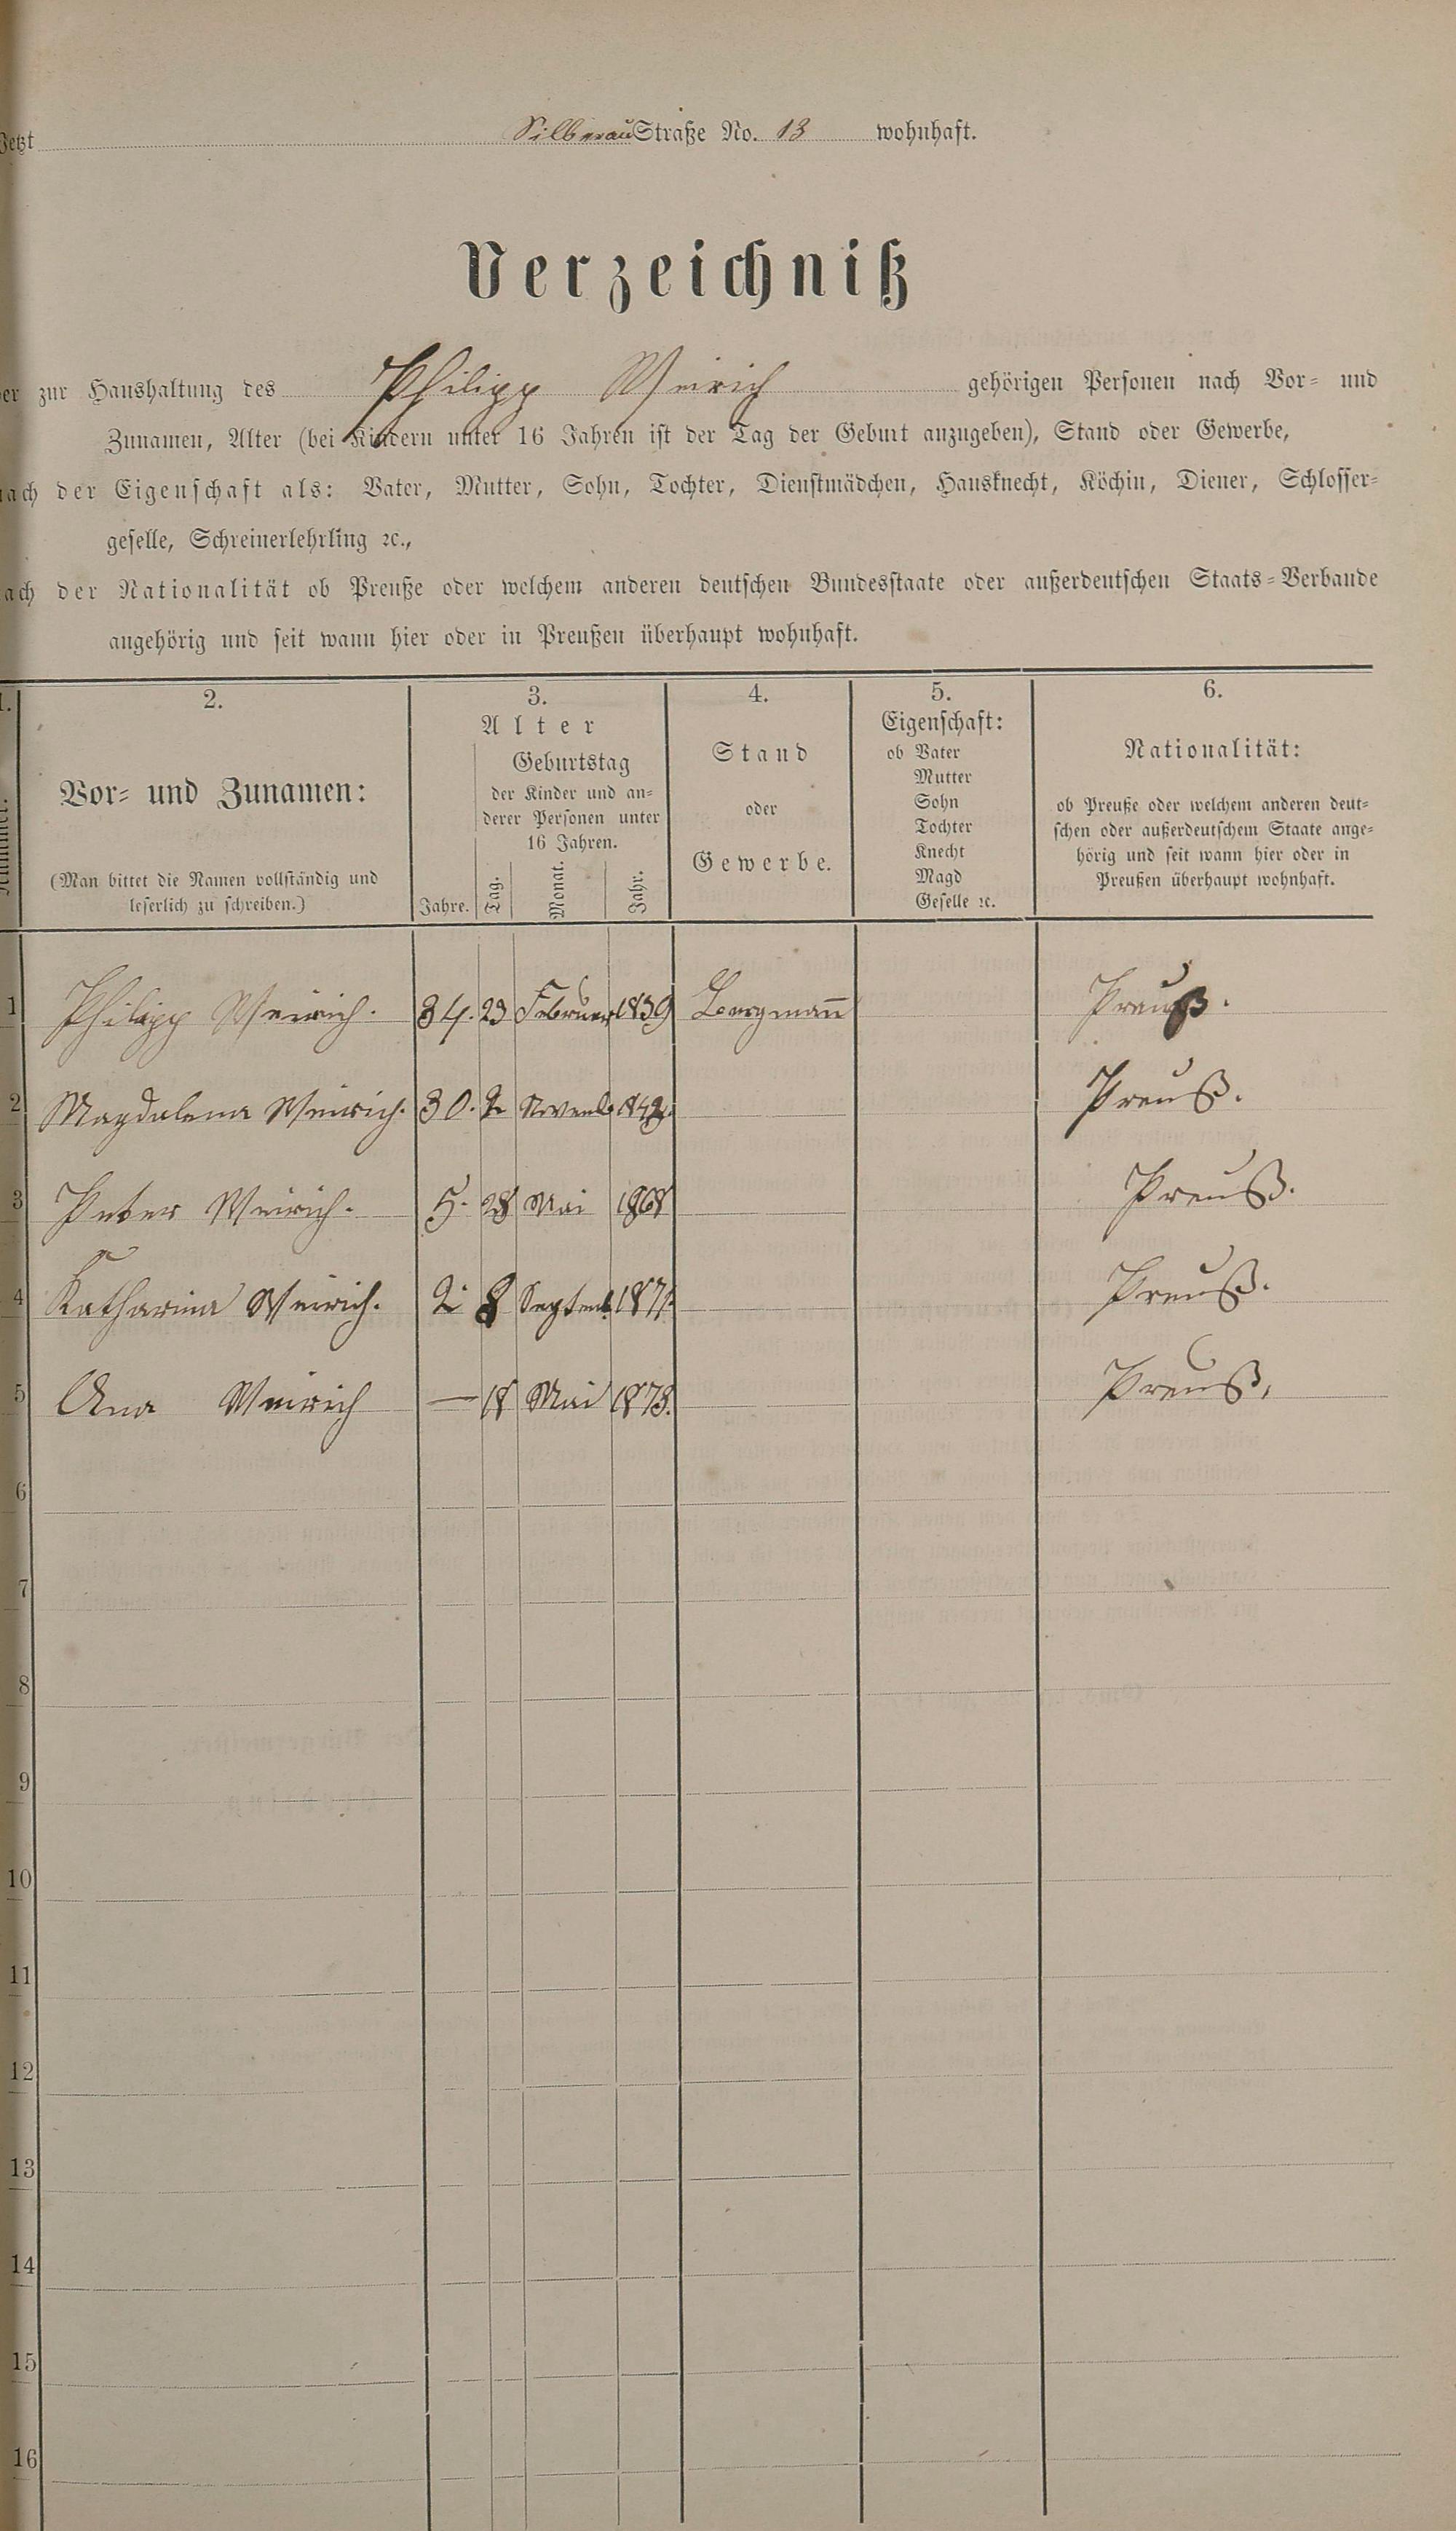 Jetzt Silberau Straße No. 13 wohnhaft.
Verzeichniß
der zur Haushaltung des Philipp Weirich gehörigen Personen nach Vor- und
Zunamen, Alter (bei Kindern unter 16 Jahren ist der Tag der Geburt anzugeben), Stand oder Gewerbe,
nach der Eigenschaft als: Vater, Mutter, Sohn, Tochter, Dienstmädchen, Hausknecht, Köchin, Diener, Schlosser-
geselle, Schreinerlehrling ꝛc.,
nach der Nationalität ob Preuße oder welchem anderen deutschen Bundesstaate oder außerdeutschen Staats-Verbande
angehörig und seit wann hier oder in Preußen überhaupt wohnhaft.
1. 2. 3. 4. 5. 6.
Nummer.
Vor- und Zunamen:
(Man bittet die Namen vollständig und
leserlich zu schreiben.)
Alter
Geburtstag
der Kinder und an-
derer Personen unter
16 Jahren.
Jahre. Tag. Monat. Jahr.
Stand
oder
Gewerbe.
Eigenschaft:
ob Vater
Mutter
Sohn
Tochter
Knecht
Magd
Geselle ꝛc.
Nationalität:
ob Preuße oder welchem anderen deut-
schen oder außerdeutschem Staate ange-
hörig und seit wann hier oder in
Preußen überhaupt wohnhaft.
1 Philipp Weirich. 34. 23 Februar 1839 Bergman̄ Preuß.
2 Magdalena Weirich. 30. 2 Novemb. Preuß.
3 Peter Weirich. 5. 28 Mai 1868 Preuß.
4 Katharina Weirich. 2. 8 Septemb. 1871. Preuß.
5 Ana Weirich — 18 Mai 1873. Preuß.
6
7
8
9
10
11
12
13
14
15
16